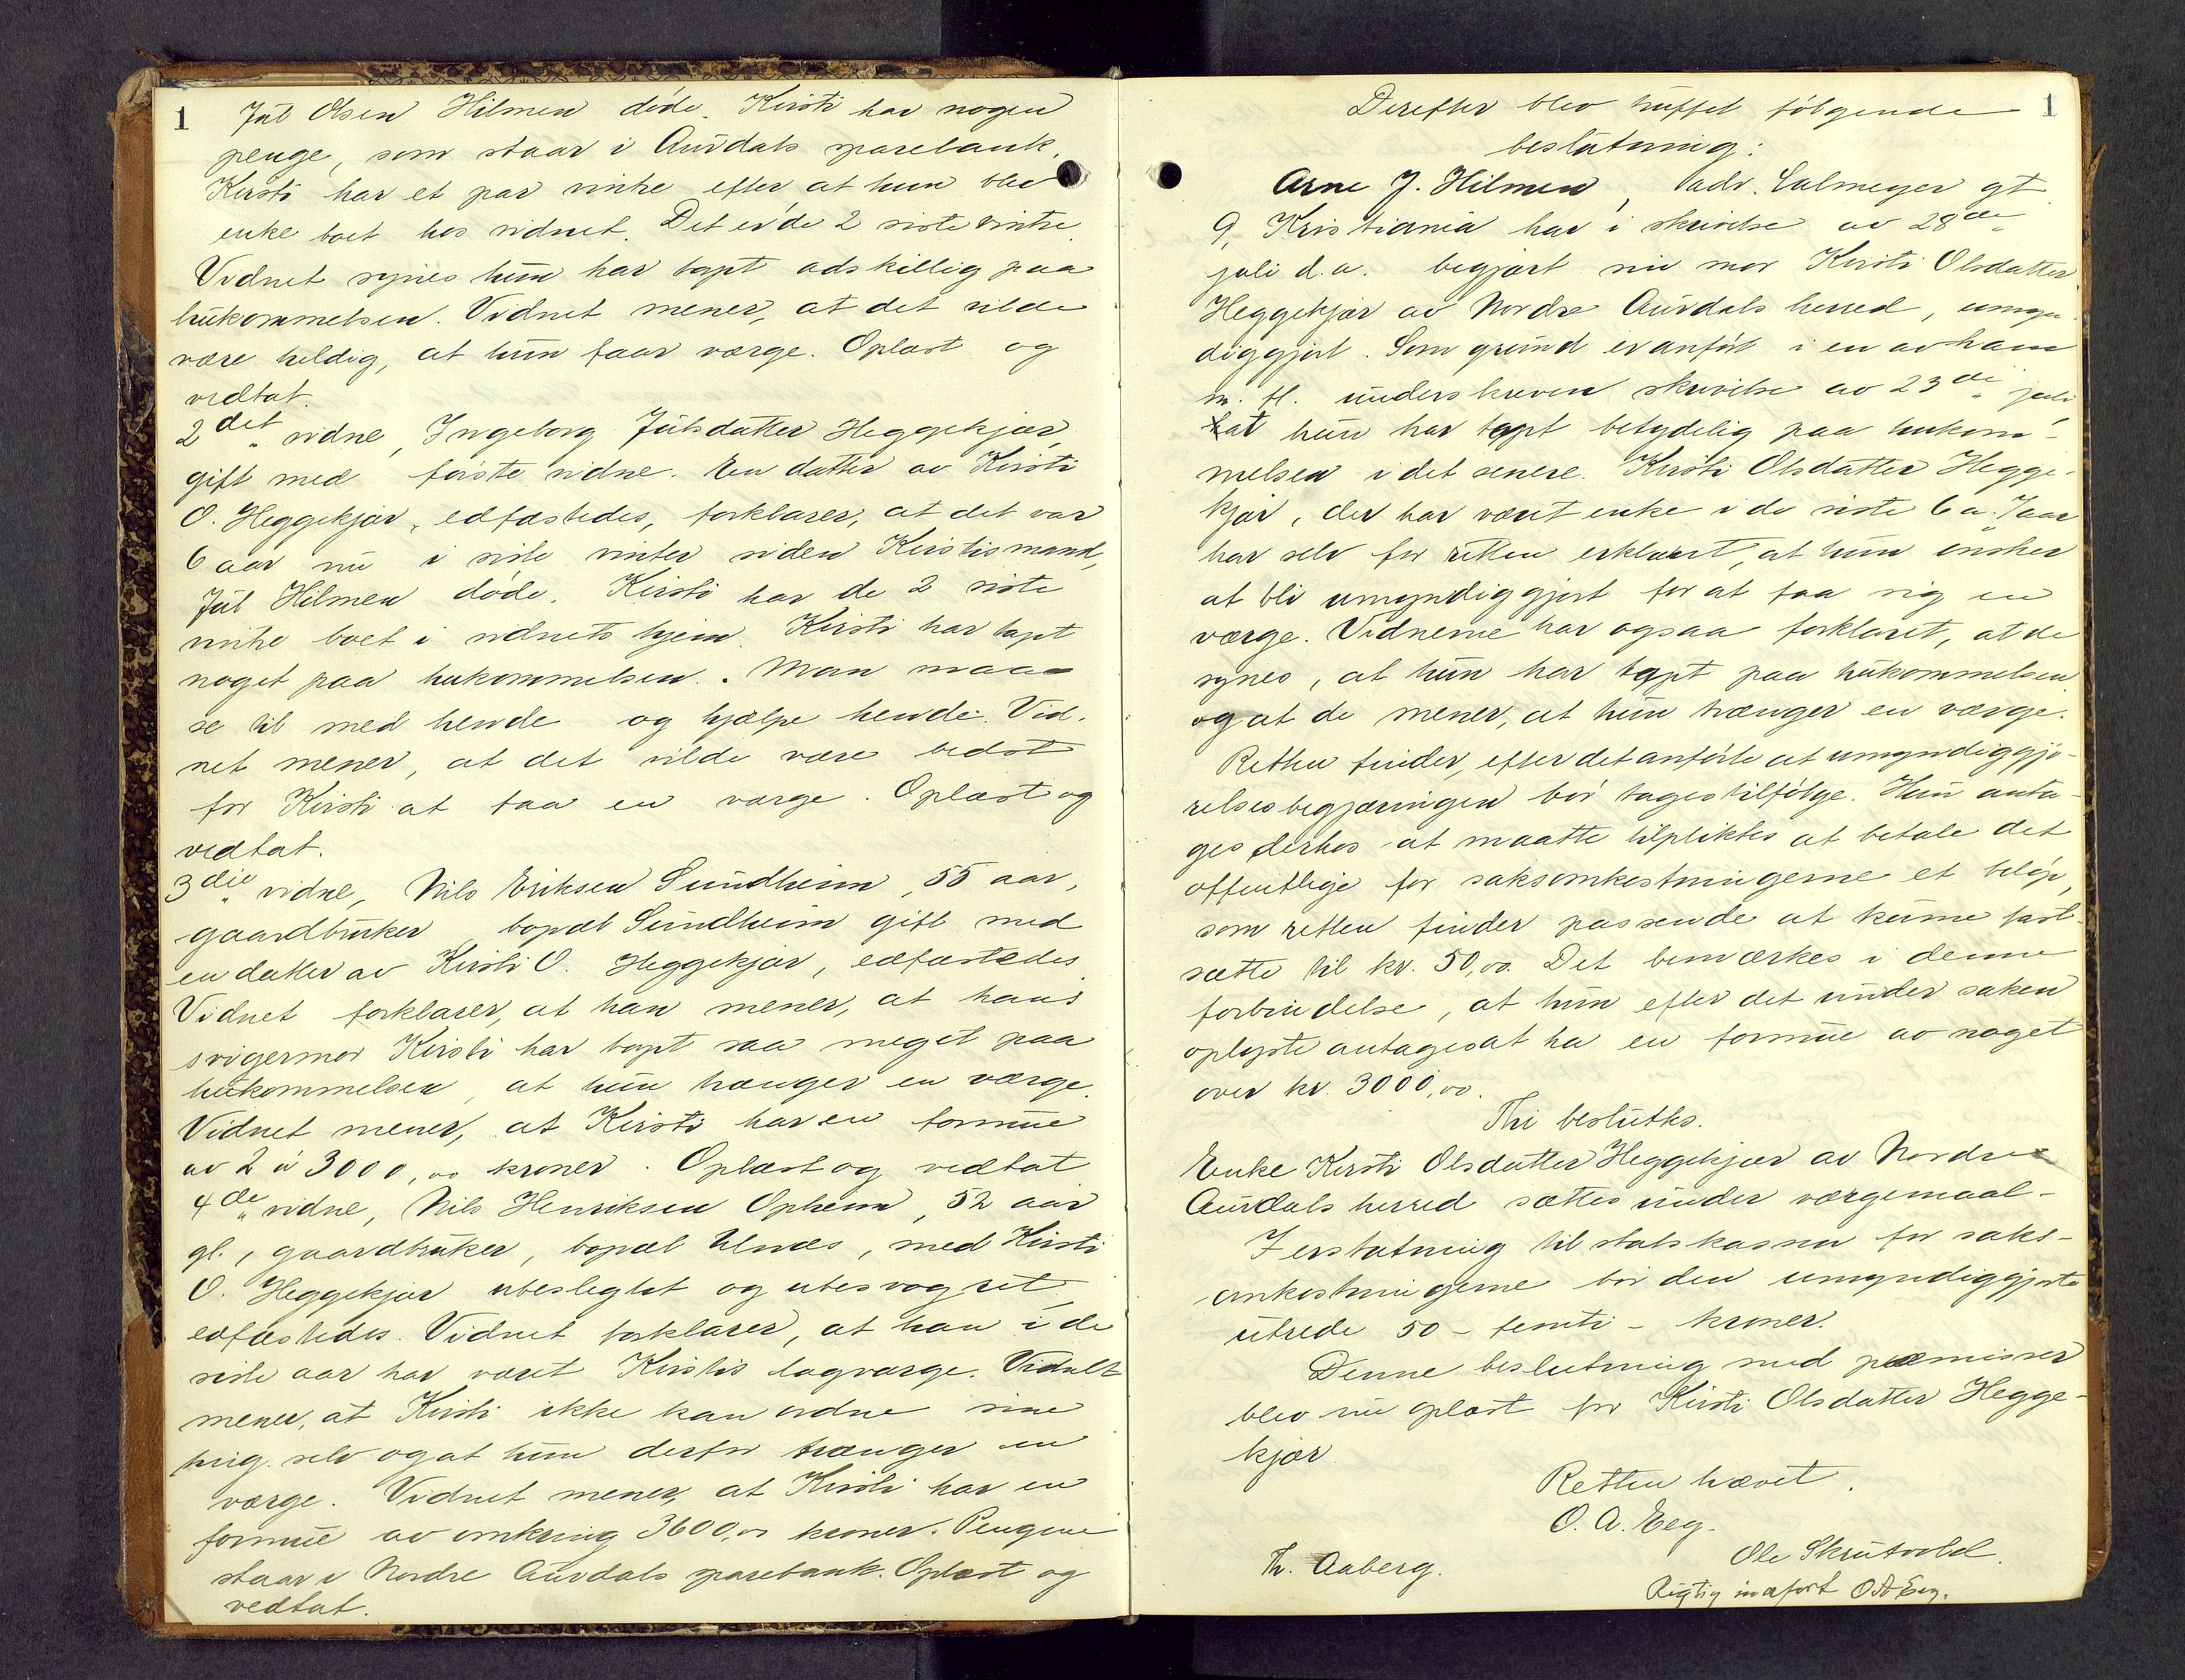 1
Jul Olsen Hilmen døde. Kirsti har nogen
penge, som staar i Aurdals sparebank.
Kirsti har et par vintre efter at hun blev
enke boet hos vidnet. Det er de 2 siste vintre.
Vidnet synes hun har tapt adskillig paa
hukommelsen. Vidnet mener, at det vilde
være heldig, at hun faar værge. Oplæst og
vedtat.
2det vidne, Ingeborg Julsdatter Heggekjær,
gift med første vidne. En datter av Kirsti
O. Heggekjær, edfæstedes, forklarer, at det var
6 aar nu i siste vinter siden Kirstis mand,
Jul Hilmen døde. Kirsti har de 2 siste
vintre boet i vidnets hjem. Kirsti har tapt
noget paa hukommelsen. Man maa
se til med hende og hjælpe hende. Vid-
net mener, at det vilde være bedst
for Kirsti at faa en værge. Oplæst og
vedtat.
3die vidne, Nils Eriksen Sundheim, 55 aar,
gaardbruker, bopæl Sundheim gift med
en datter av Kirsti O. Heggekjær, edfæstedes.
Vidnet forklarer, at han mener, at hans
svigermor Kirsti har tapt saa meget paa
hukommelsen, at hun trænger en værge.
Vidnet mener, at Kirsti har en formue
av 2 à 3000,00 kroner. Oplæst og vedtat
4de vidne, Nils Henriksen Opheim, 52 aar
gl., gaardbruker, bopæl Ulnæs, med Kirsti
O. Heggekjær ubeslegtet og ubesvogret,
edfæstedes. Vidnet forklarer, at han i de
siste aar har været Kirstis lagværge. Vidnet
mener, at Kirsti ikke kan ordne sine
ting selv og at hun derfor trænger en
værge. Vidnet mener, at Kirsti har en
formue av omkring 3600,00 kroner. Pengene
staar i Nordre Aurdals sparebank. Oplæst og
vedtat.
1
Derefter blev truffet følgende
beslutning:
Arne J. Hilmen, adr. Calmeyer gt
9, Kristiania har i skrivelse av 28de
juli d.a. begjært sin mor Kirsti Olsdatter
Heggekjær av Nordre Aurdals herred, umyn-
diggjort. Som grund er anført i en av ham
m. fl. underskreven skrivelse av 23de juli
at hun har tapt betydelig paa hukom-
melsen i det senere. Kirsti Olsdatter Hegge-
kjær, der har været enke i de siste 6 a. 7 aar
har selv for retten erklæret, at hun ønsker
at bli umyndiggjort for at faa sig en
værge. Vidnerne har ogsaa forklaret, at de
synes, at hun har tapt paa hukommelsen
og at de mener, at hun trænger en værge.
Retten finder, efter det anførte at umyndiggjø-
relsesbegjæringen bør tages tilfølge. Hun anta-
ges derhos at maatte tilpliktes at betale det
offentlige for saksomkostningerne et beløp,
som retten finder passende at kunne fast-
sætte til kr. 50,00. Det bemærkes i denne
forbindelse, at hun efter det under saken
oplyste antages at ha en formue av noget
over kr. 3000,00.
Thi besluttes.
Enke Kirsti Olsdatter Heggekjær av Nordre
Aurdals herred sættes under værgemaal-
I erstatning til statskassen for saks-
omkostningerne bør den umyndiggjorte
utrede 50 - femti - kroner.
Denne beslutning med præmisser
blev nu oplæst for Kirsti Olsdatter Hegge-
kjær
Retten hævet.
O. A. Eeg.
Th. Aaberg.
Ole Skrutvold.
Rigtig indført O A Eeg.